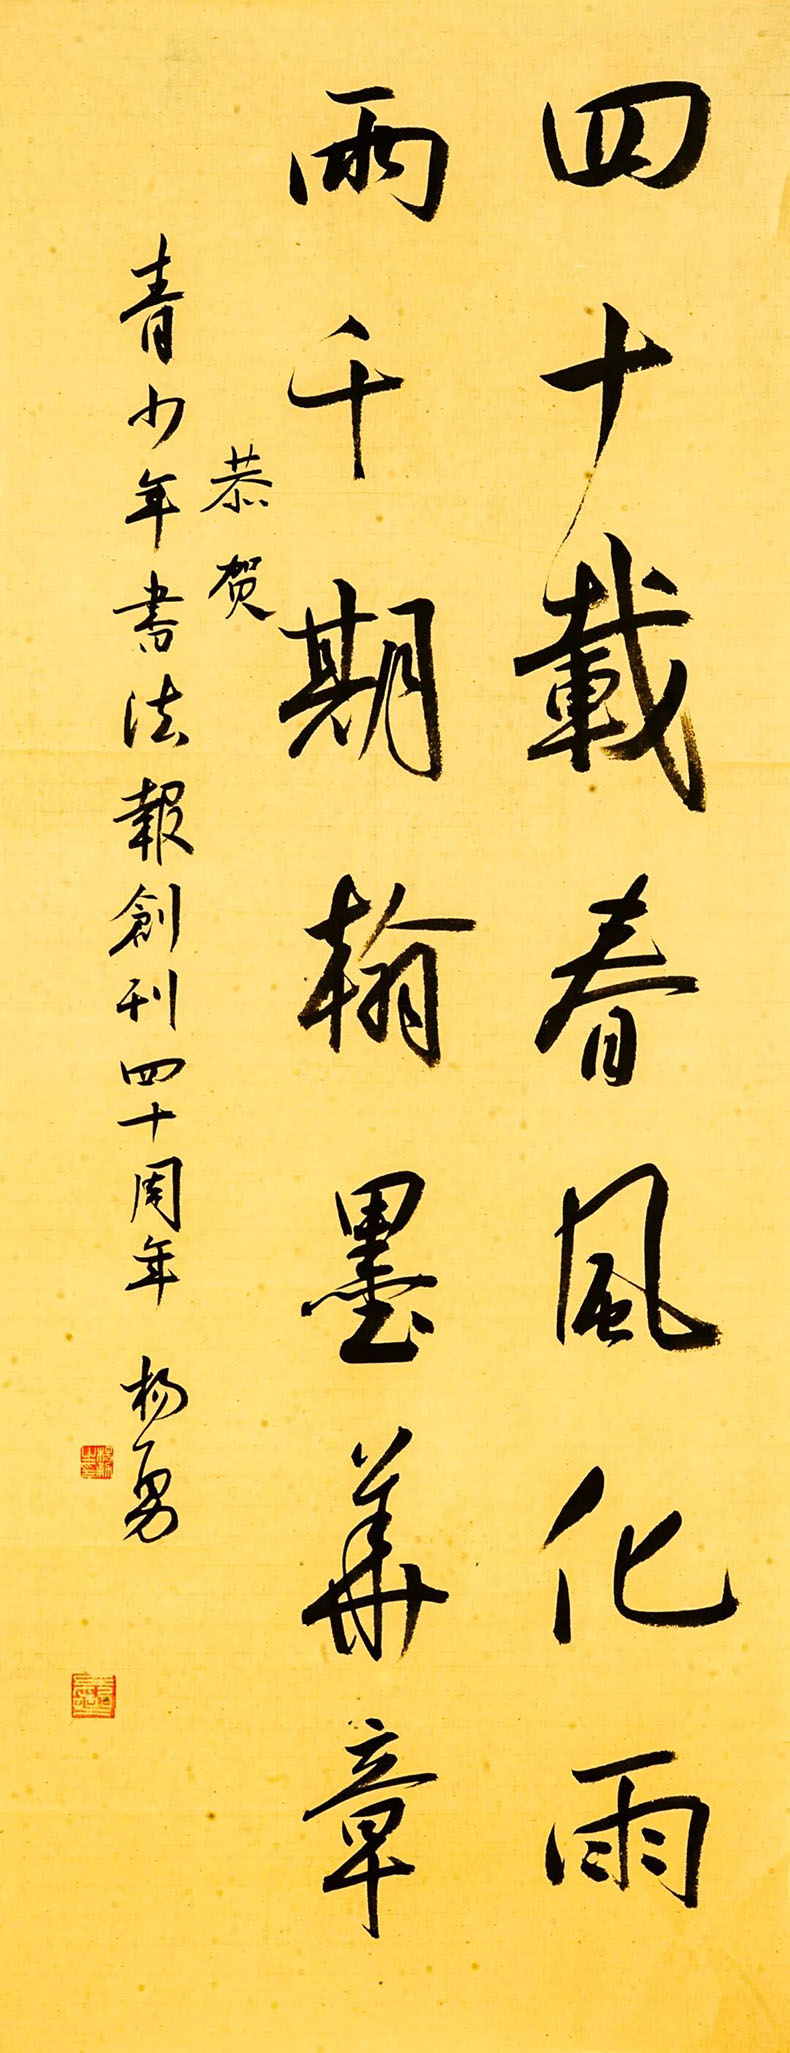 四十載春風化雨
兩千期翰墨華章
恭贺
青少年書法報創刊四十周年 杨勇